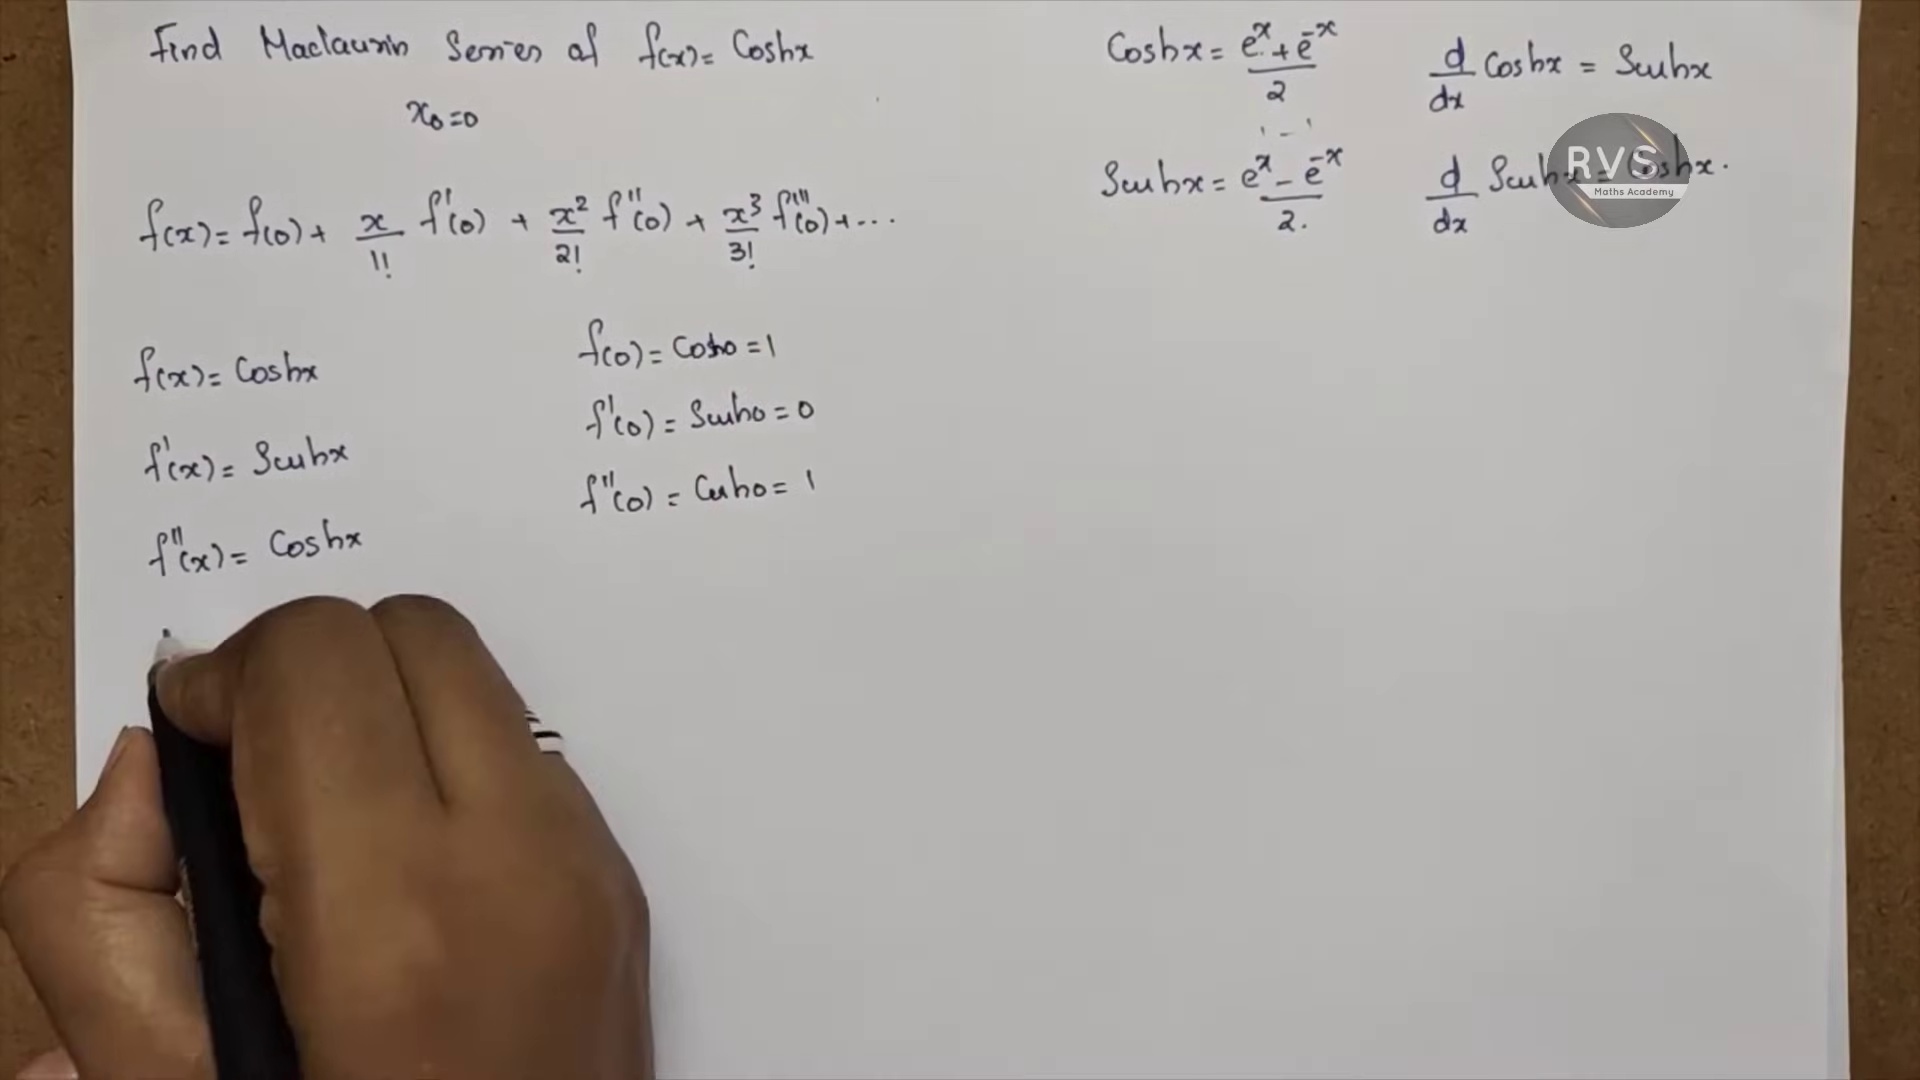 Find Maclaurin Series of f(x) = Coshx
x₀=0
f(x) = f(0) + x/1! f'(0) + x²/2! f''(0) + x³/3! f'''(0) + ...
f(x) = Coshx
f'(x) = Sinhx
f''(x) = Coshx
f(0) = Cosh0 = 1
f'(0) = Sinh0 = 0
f''(0) = Cosh0 = 1
Coshx = e^x + e^-x / 2
Sinhx = e^x - e^-x / 2.
d/dx Coshx = Sinhx
d/dx Sinhx = Coshx.
RVS
Maths Academy